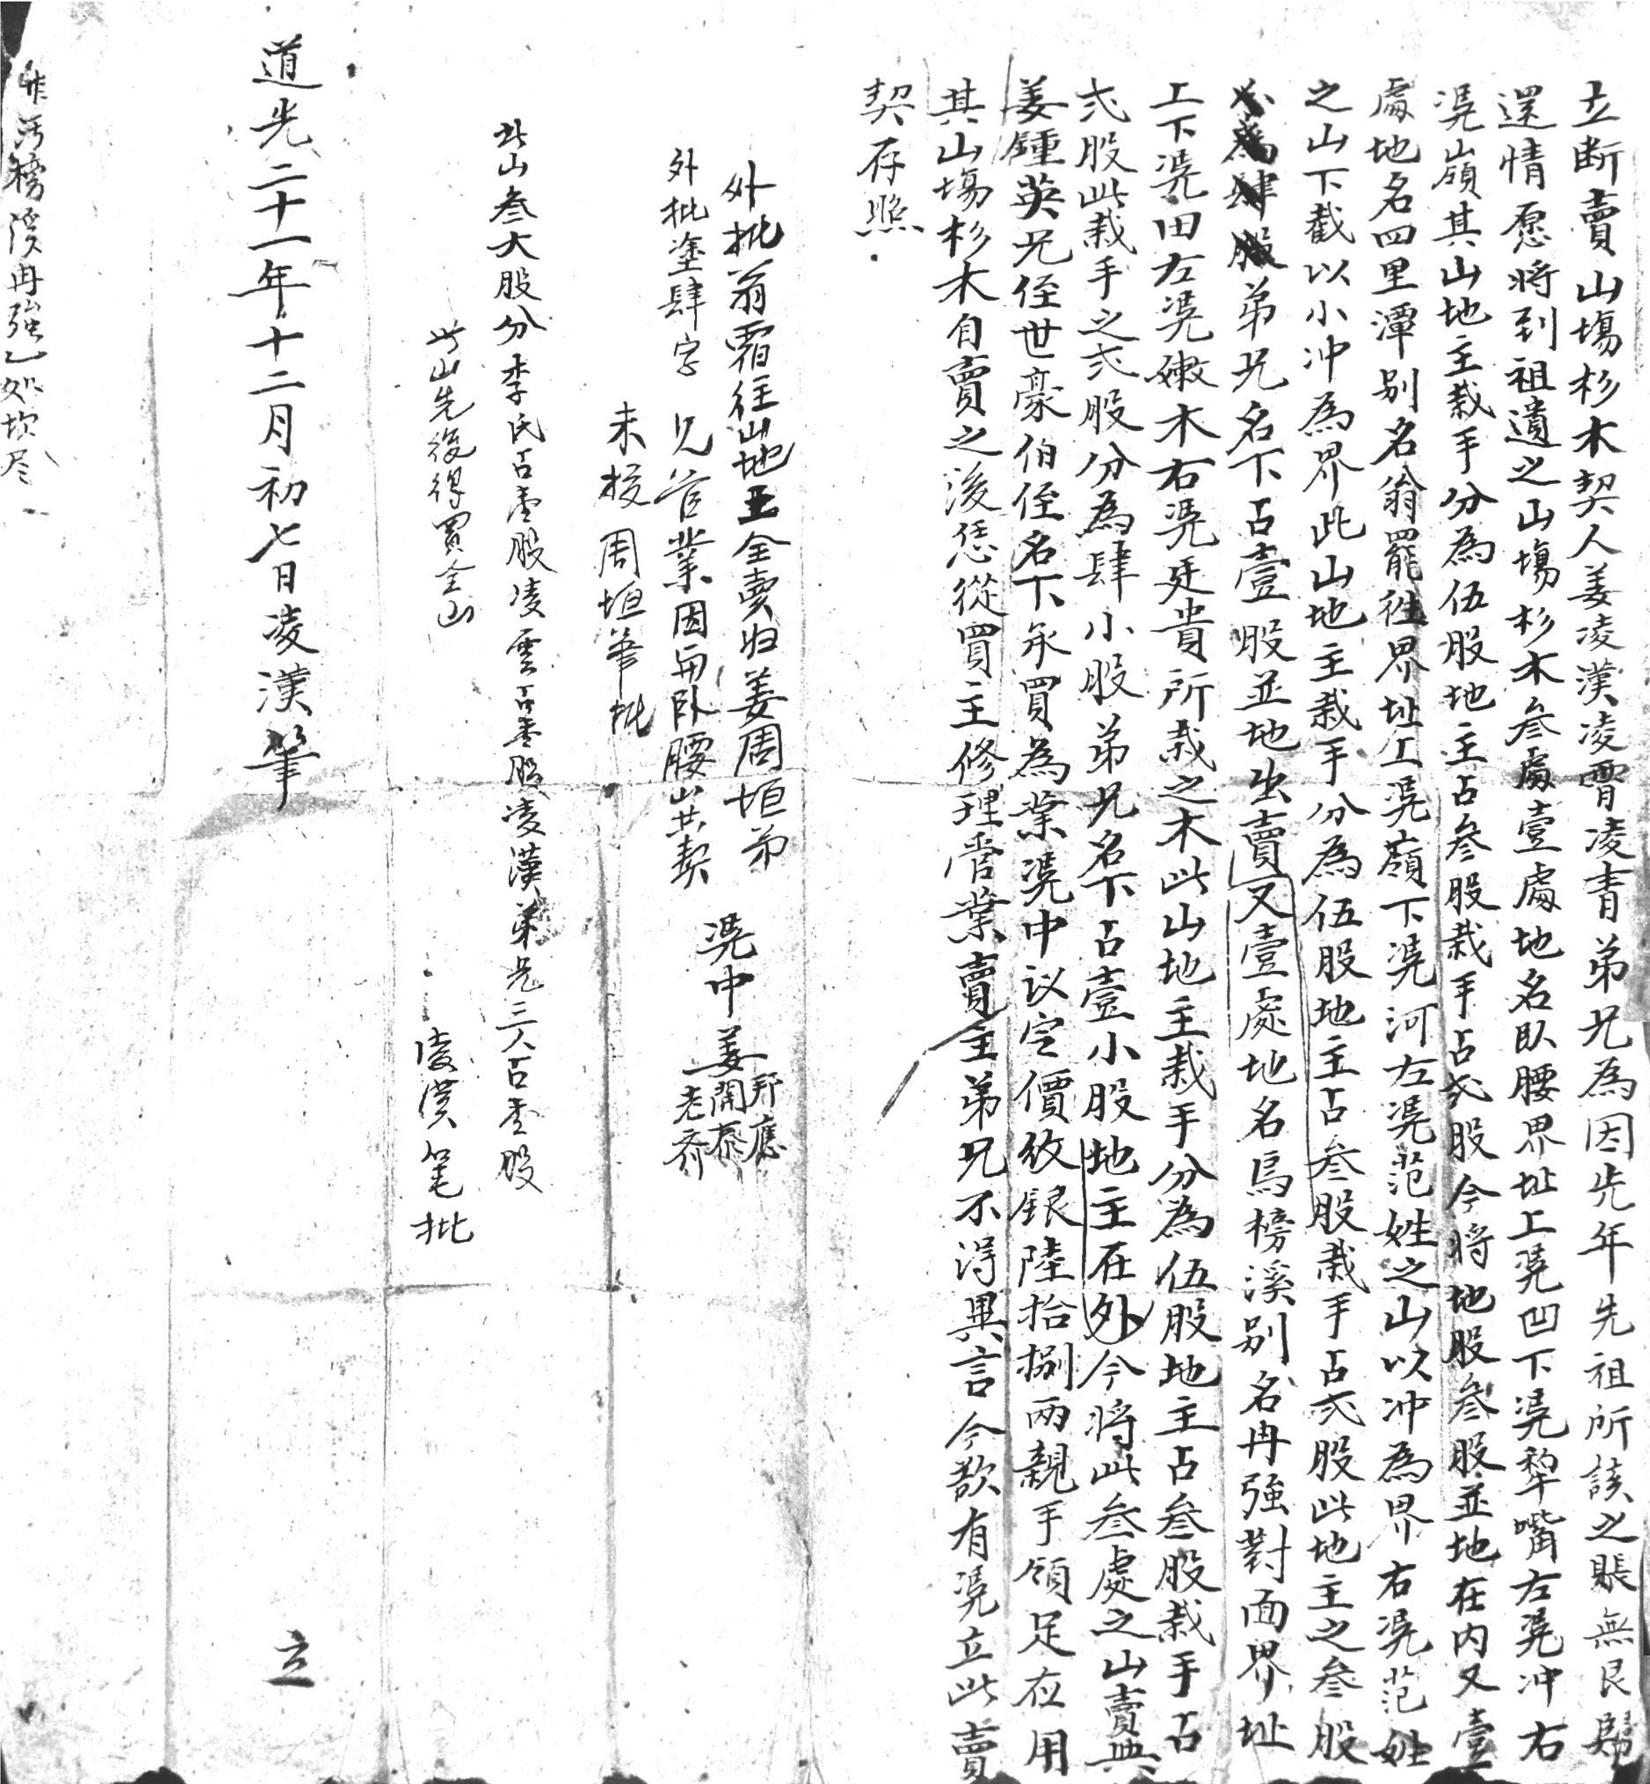 立断賣山塲杉木契人姜凌漢凌霄凌青弟兄為因先年先祖所該之賬無艮歸
還情愿將到祖遺之山塲杉木叁處壹處地名臥腰界址上凴凹下凴犂嘴左凴冲右
凴嶺其山地主栽手分為伍股地主占叁股栽手占弍股今將地股叁股並地在内又壹
處地名四里潭别名翁罷祍界址上凴嶺下凴河左凴范姓之山以冲為界右凴范姓
之山下截以小冲為界此山地主栽手分為伍股地主占叁股栽手占弍股此地主之叁股
分為肆股弟兄名下占壹股並地出賣又壹處地名烏榜溪别名冉強對面界址
上下凴田左凴嫩木右凴廷貴所栽之木此山地主栽手分為伍股地主占叁股栽手占
弍股此栽手之弍股分為肆小股弟兄名下占壹小股地主在外今將此叁處之山賣與
姜鍾英兄侄世豪伯侄名下承買為業凴中议定價紋銀陸拾捌兩親手領足应用
其山塲杉木自賣之後恁從買主修理管業賣主弟兄不得異言今欲有凴立此賣
契存照
外批翁霜往山地主全賣归姜周垣弟
外批塗肆字 兄管業因与臥腰山共契
未授 周垣筆批
凴中姜邦應
開泰
老齐
此山叁大股分李氏占壹股凌雲占壹股凌漢弟兄三人占壹股
此山先後得買全山
凌漢笔批
道光二十一年十二月初七日凌漢筆 立
污榜溪冉強乙处坎尽